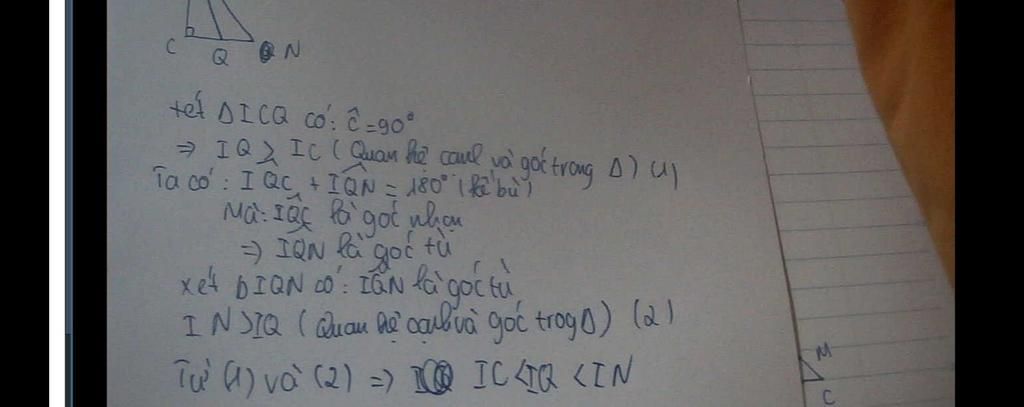 C Q N
xét ΔICQ có: Ĉ = 90°
⇒ IQ > IC (Quan hệ cạnh và góc trong Δ) (1)
Ta có: IQ̂C + IQ̂N = 180° (kề bù)
Mà: IQ̂C là góc nhọn
⇒ IQ̂N là góc tù
xét ΔIQN có: IQ̂N là góc tù
IN > IQ (Quan hệ cạnh và góc trog Δ) (2)
Từ (1) và (2) ⇒ IC < IQ < IN
M
C